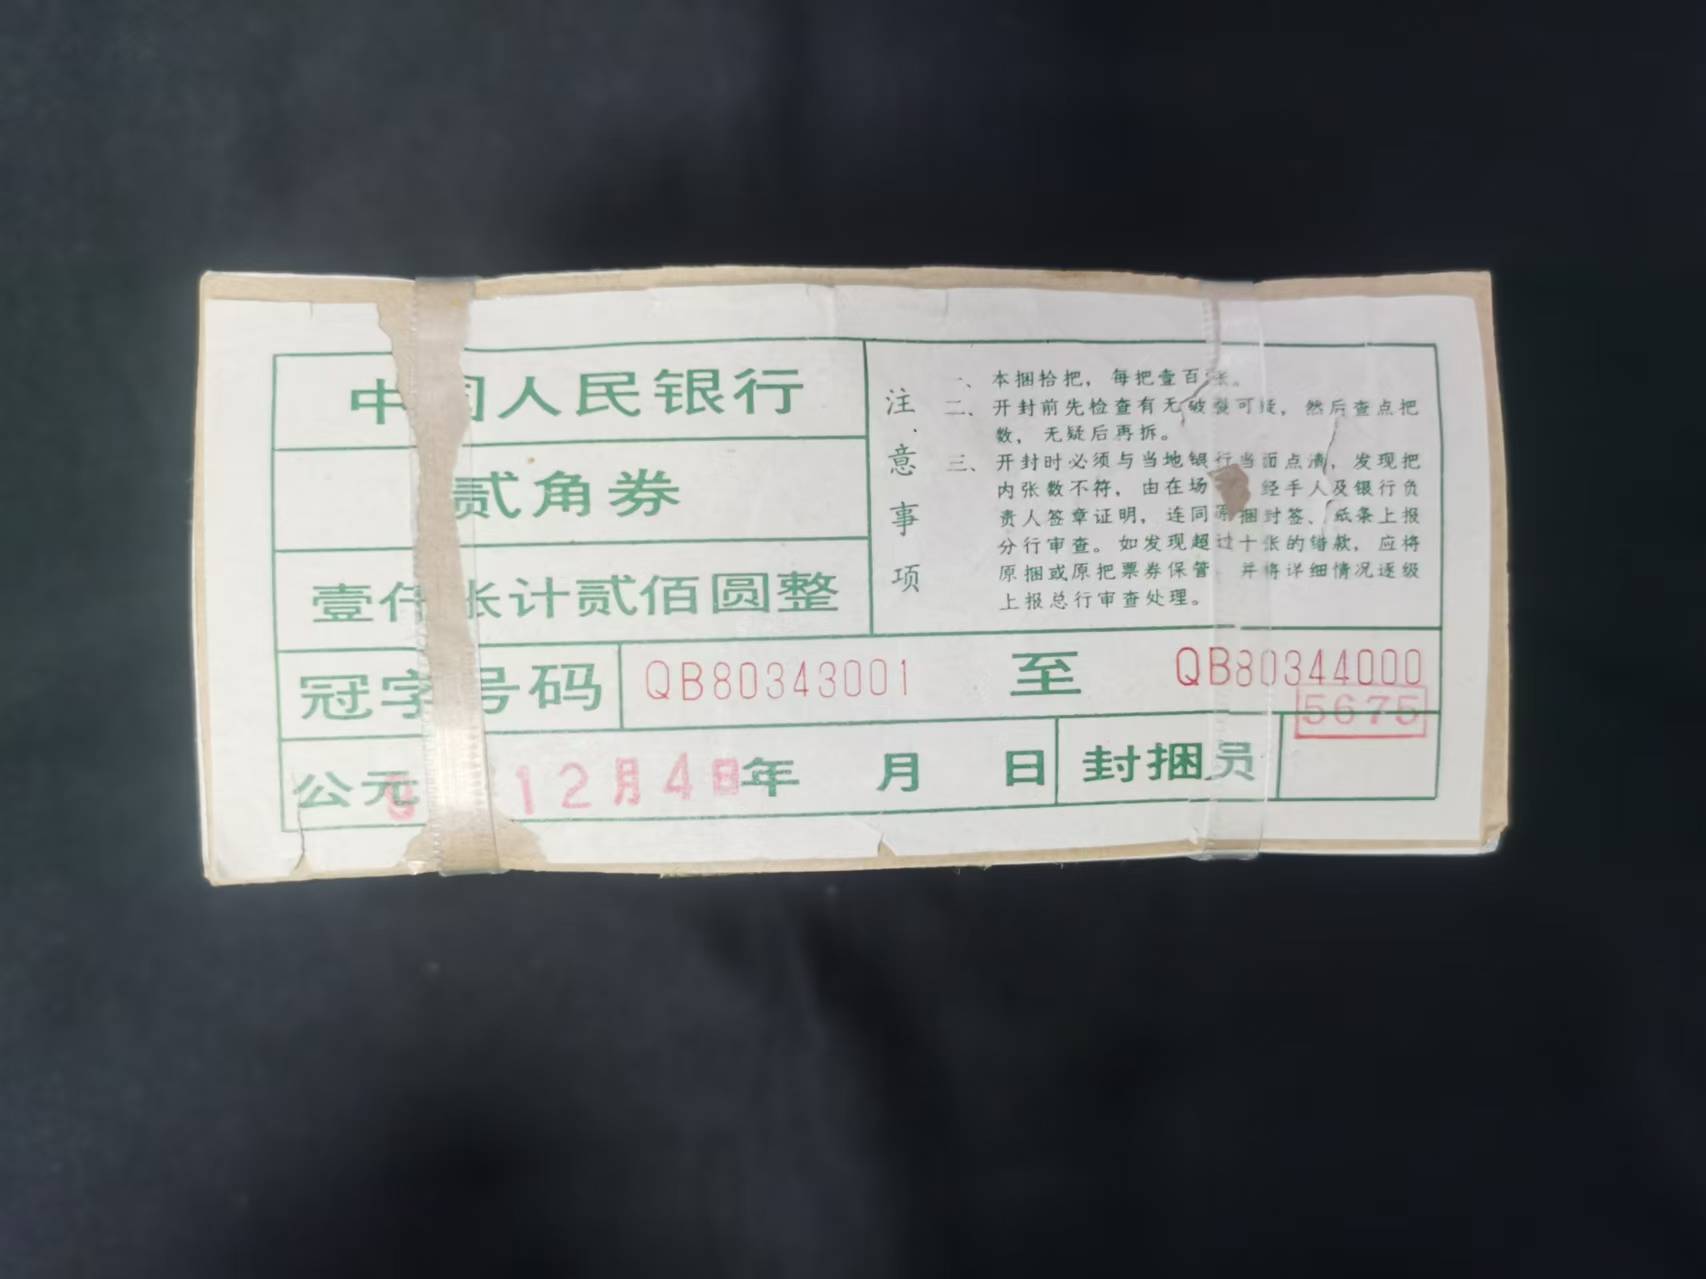 中国人民银行
贰角券
壹仟张计贰佰圆整
注意事项
一、本捆拾把，每把壹百张。
二、开封前先检查有无破裂可疑，然后查点把
数，无疑后再拆。
三、开封时必须与当地银行当面点清，发现把
内张数不符，由在场 经手人及银行负
责人签章证明，连同原捆封签、纸条上报
分行审查。如发现超过十张的错款，应将
原捆或原把票券保管 并将详细情况逐级
上报总行审查处理。
冠字号码 QB80343001 至 QB80344000
5675
公元 12月4日年 月 日 封捆员